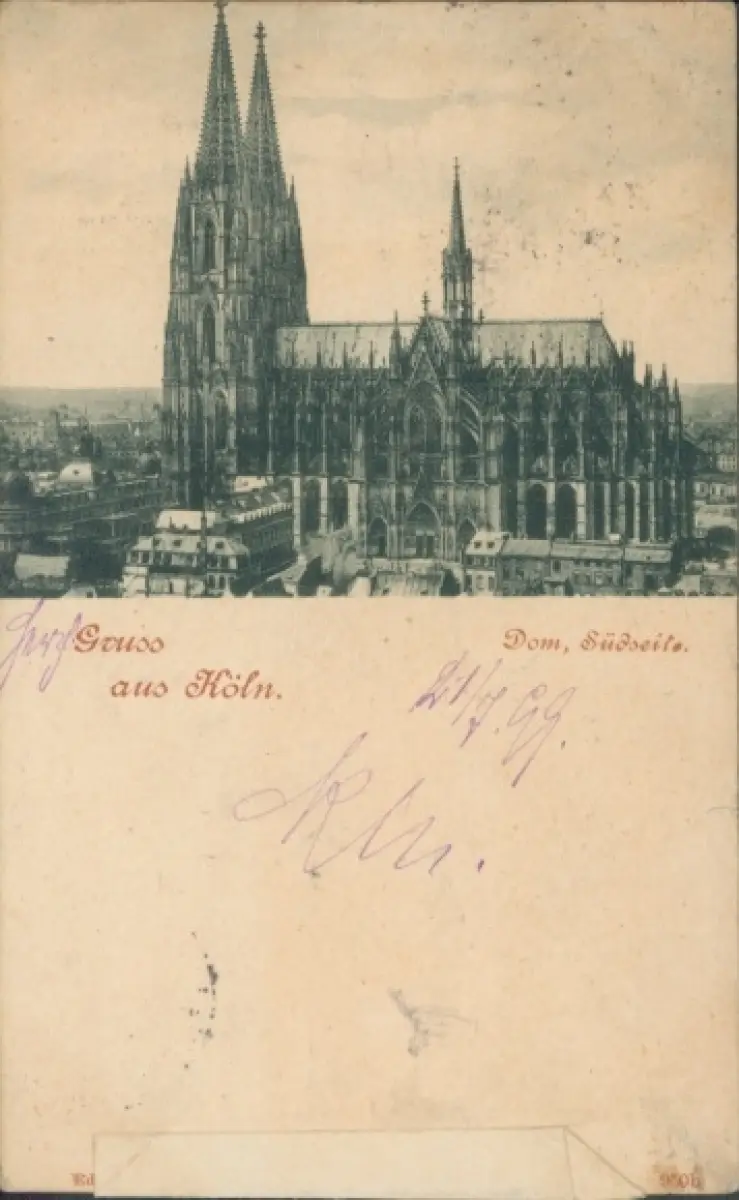 Herzl. Gruss
aus Köln.
Dom, Südseite.
21/7.99.
Ed